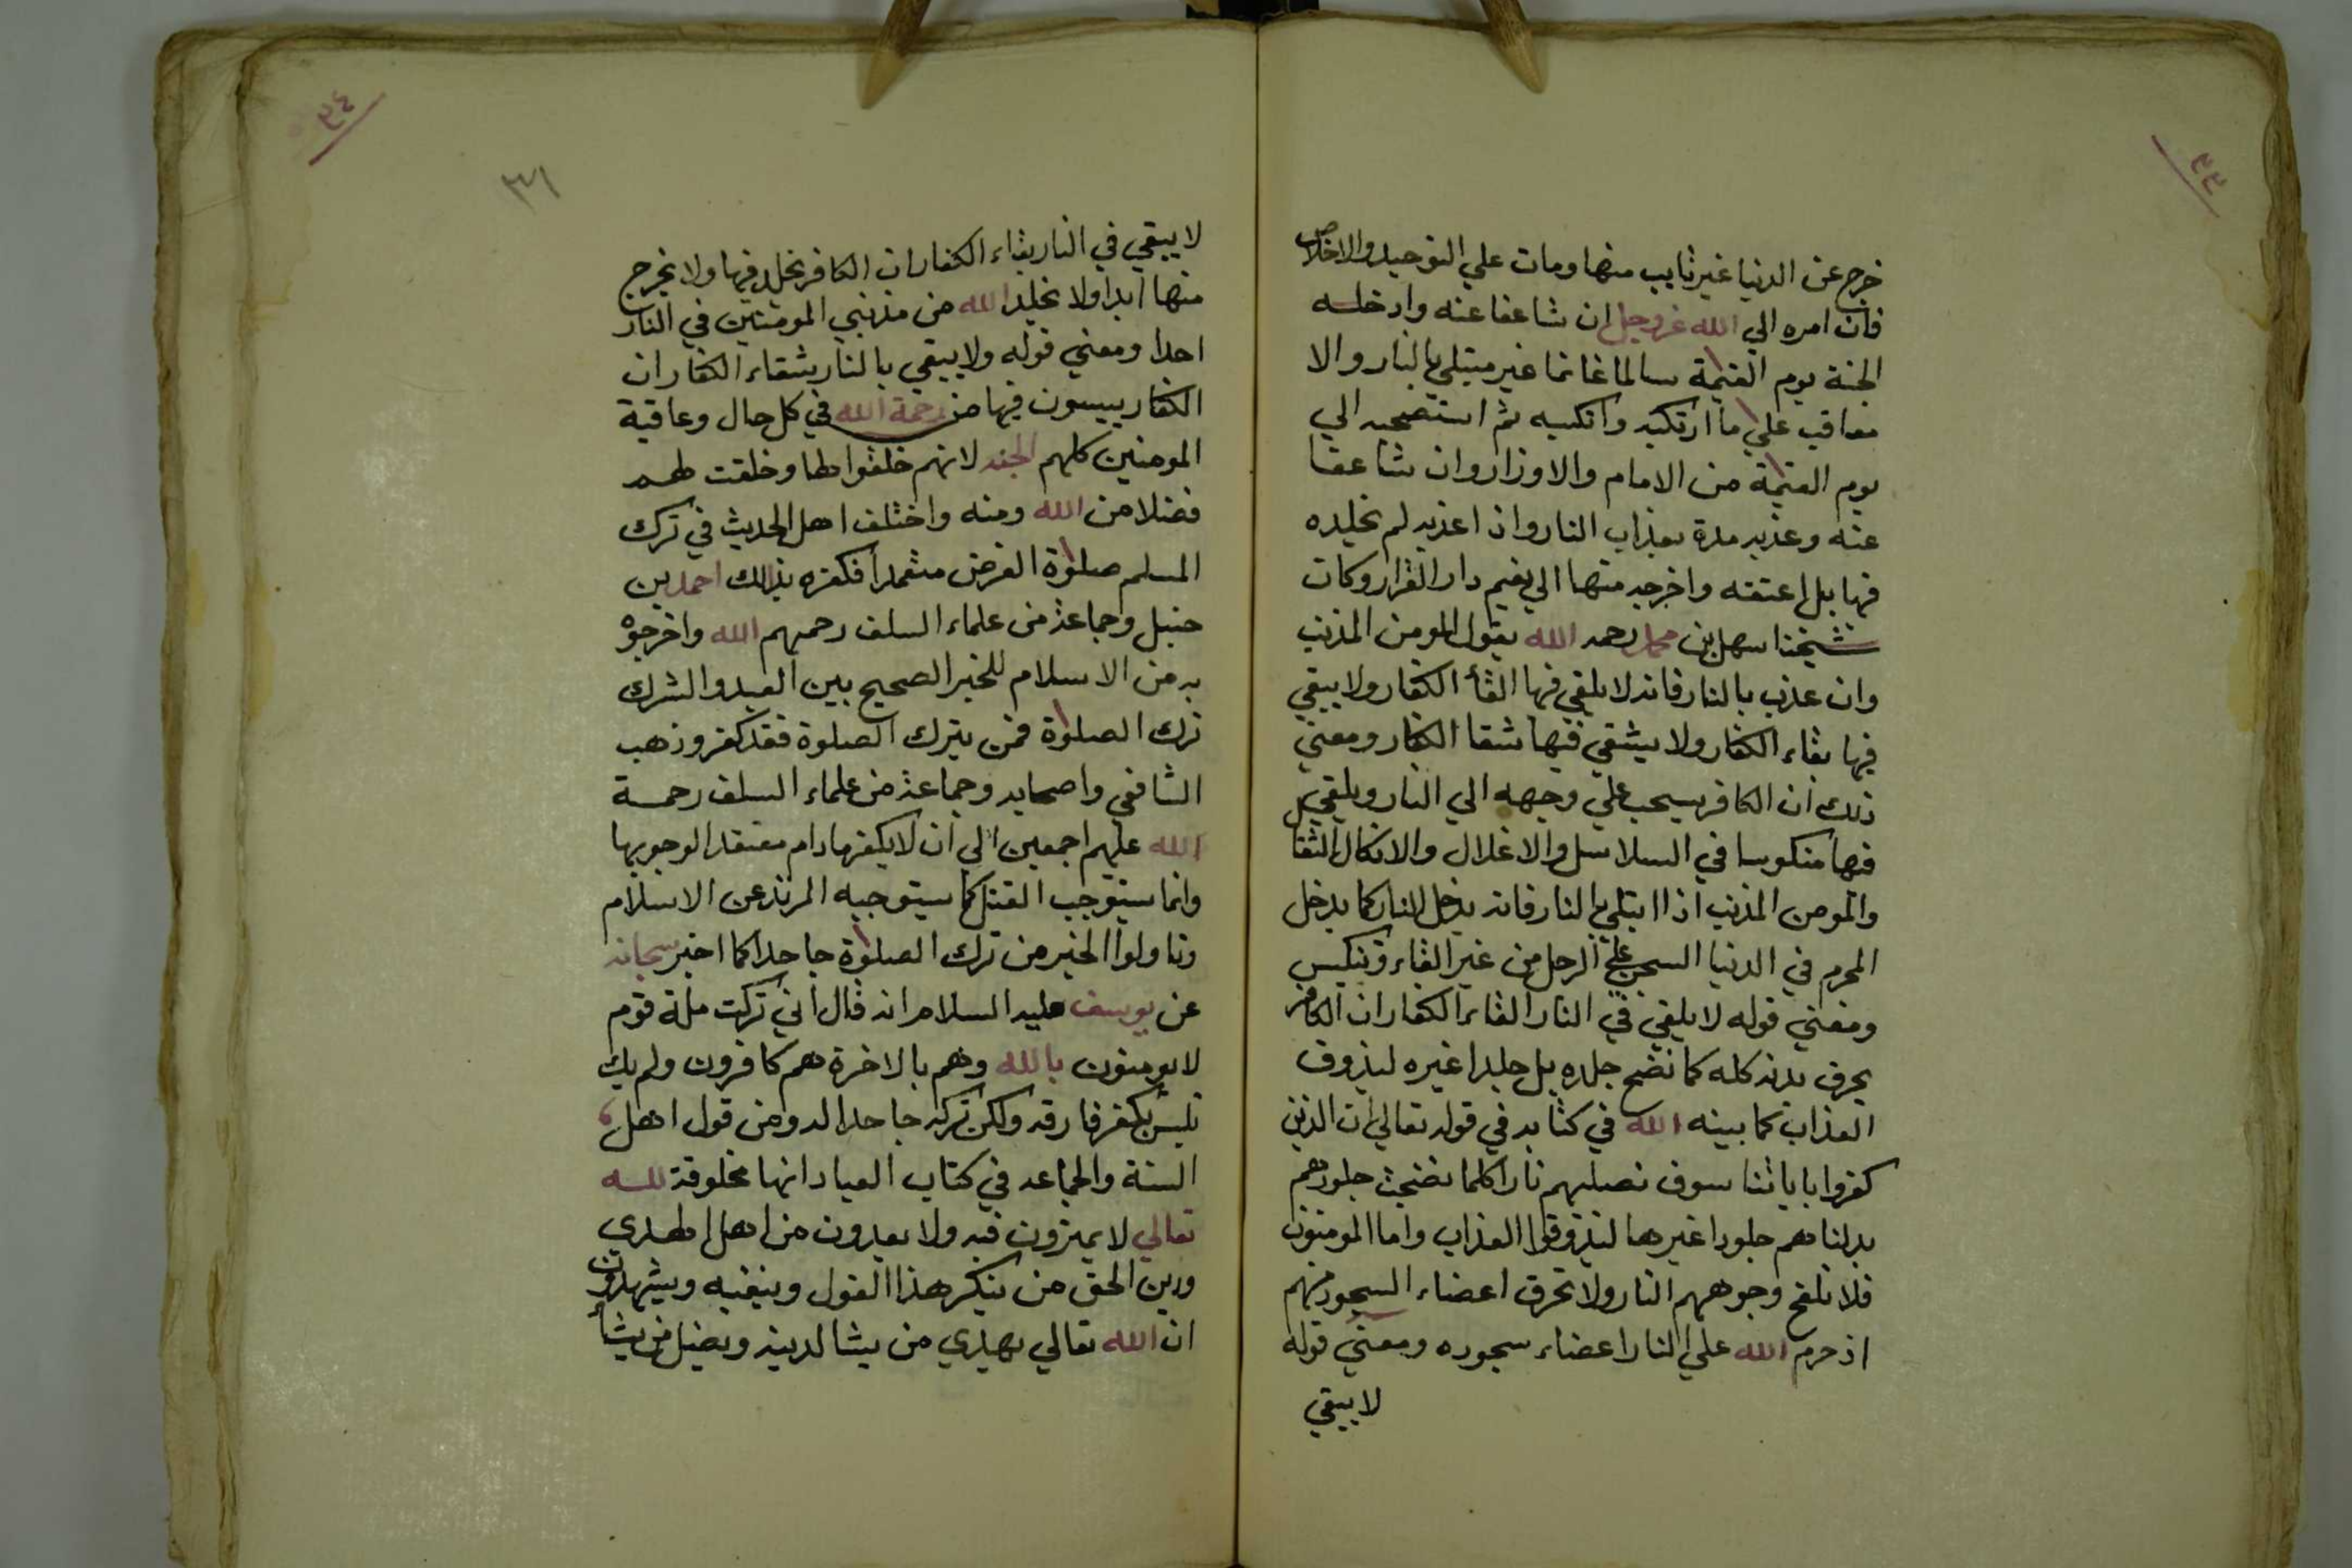 ٣٣
خرج عن الدنيا غير تايب منها ومات علي التوحيد والاخلاص
فان امره الي الله عز وجل ان شا عفا عنه وادخله
الجنة يوم القيمة سالما غانما غير مبتلي بالنار والا
معاقب علي ما ارتكبه واكتسبه ثم استصحبه الي
يوم القيمة من الاثام والاوزار وان شا عقا
عنه وعذبه مدة بعذاب النار واذا عذبه لم يخلده
فيها بل اعتقه واخرجه منها الي نعيم دار القرار وكان
شيخنا سهل بن محمد رحمه الله يقول المومن المذنب
وان عذب بالنار فانه لا يلقي فيها القأ الكفار ولا يبقي
فيها بقاء الكفار ولا يشقي فيها شقا الكفار ومعني
ذلك ان الكافر يسحب علي وجهه الي النار ويلقي
فيها منكوسا في السلاسل والاغلال والانكال الثقال
والمومن المذنب اذا ابتلي بالنار فانه يدخل النار كما يدخل
المجرم في الدنيا السجن علي الرجل من غير القاء وتنكيس
ومعني قوله لا يلقي في النار القاء الكفار ان الكافر
يحرق بدنه كله كما نضج جلده بدل جلدا غيره ليذوق
العذاب كما بينه الله في كتابه في قوله تعالي ان الذين
كفروا باياتنا سوف نصليهم نارا كلما نضجت جلودهم
بدلناهم جلودا غيرها ليذوقوا العذاب واما المومنون
فلا تلفح وجوههم النار ولا تحرق اعضاء السجود منهم
اذ حرم الله علي النار اعضاء سجوده ومعني قوله
لا يبقي
٣٤
٣١
لا يبقي في النار بقاء الكفار ان الكافر يخلد فيها ولا يخرج
منها ابدا ولا يخلد الله من مذنبي المومنين في النار
احدا ومعني قوله ولا يبقي بالنار شقاء الكفار ان
الكفار ييسون فيها من رحمة الله في كل حال وعاقبة
المومنين كلهم الجنه لانهم خلقوا لها وخلقت لهم
فضلا من الله ومنه واختلف اهل الحديث في ترك
المسلم صلوة الفرض متعمدا فكفره بذالك احمد بن
حنبل وجماعة من علماء السلف رحمهم الله واخرجوه
به من الاسلام للخبر الصحيح بين العبد والشرك
ترك الصلوة فمن يترك الصلوة فقد كفر وذهب
الشافعي واصحابه وجماعة من علماء السلف رحمة
الله عليهم اجمعين الي ان لا يكفر مادام معتقدا لوجوبها
وانما يستوجب القتل كما يستوجبه المرتد عن الاسلام
وتاولوا الخبر من ترك الصلوة جاحدا كما اخبر سبحانه
عن يوسف عليه السلام انه قال اني تركت ملة قوم
لا يومنون بالله وهم بالاخرة هم كافرون ولم يك
تلبس بكفر فارقه ولكن تركه جاحدا له ومن قول اهل
السنة والجماعه في كتاب العباد انها مخلوقة لله
تعالي لا يمترون فيه ولا يعدون من اهل الهدي
ودين الحق من ينكر هذا القول وينفيه ويشهدون
ان الله تعالي يهدي من يشا لدينه ويضل من يشأ